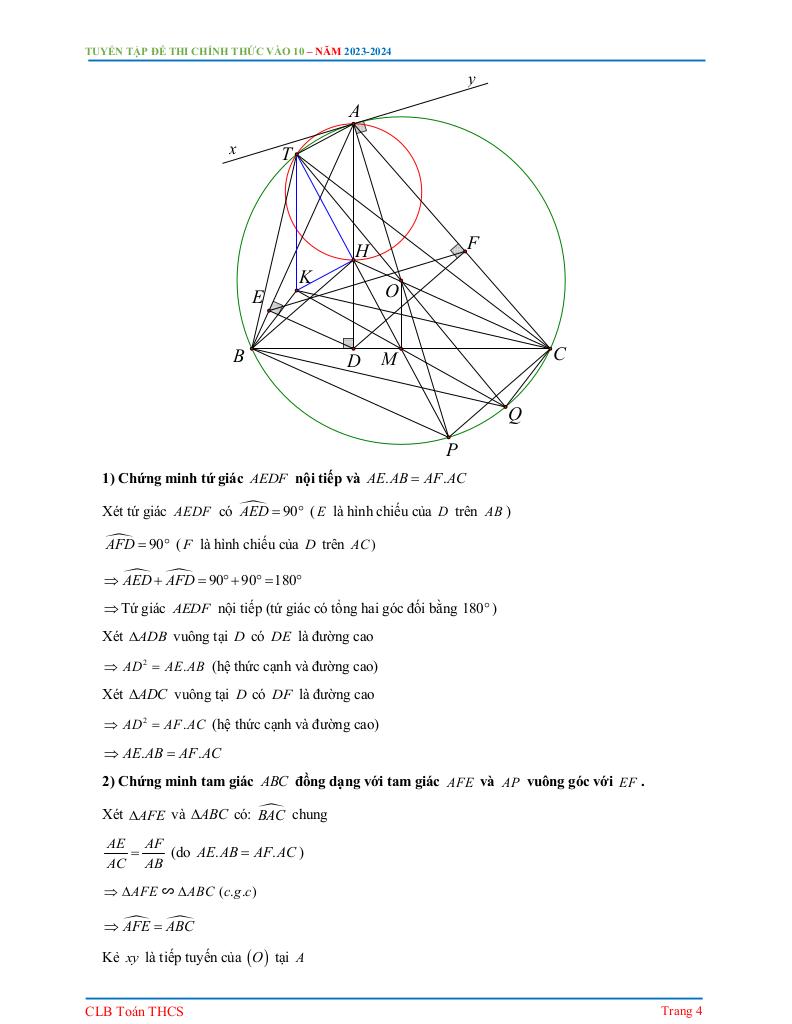 TUYỂN TẬP ĐỀ THI CHÍNH THỨC VÀO 10 – NĂM 2023-2024
y
A
x
T
F
H
K
O
E
B
D
M
C
Q
P
1) Chứng minh tứ giác AEDF nội tiếp và AE.AB = AF.AC
Xét tứ giác AEDF có \widehat{AED} = 90° ( E là hình chiếu của D trên AB )
\widehat{AFD} = 90° ( F là hình chiếu của D trên AC)
⇒ \widehat{AED} + \widehat{AFD} = 90° + 90° = 180°
⇒ Tứ giác AEDF nội tiếp (tứ giác có tổng hai góc đối bằng 180° )
Xét ΔADB vuông tại D có DE là đường cao
⇒ AD² = AE.AB (hệ thức cạnh và đường cao)
Xét ΔADC vuông tại D có DF là đường cao
⇒ AD² = AF.AC (hệ thức cạnh và đường cao)
⇒ AE.AB = AF.AC
2) Chứng minh tam giác ABC đồng dạng với tam giác AFE và AP vuông góc với EF .
Xét ΔAFE và ΔABC có: \widehat{BAC} chung
\frac{AE}{AC} = \frac{AF}{AB} (do AE.AB = AF.AC )
⇒ ΔAFE ∽ ΔABC (c.g.c)
⇒ \widehat{AFE} = \widehat{ABC}
Kẻ xy là tiếp tuyến của (O) tại A
CLB Toán THCS
Trang 4